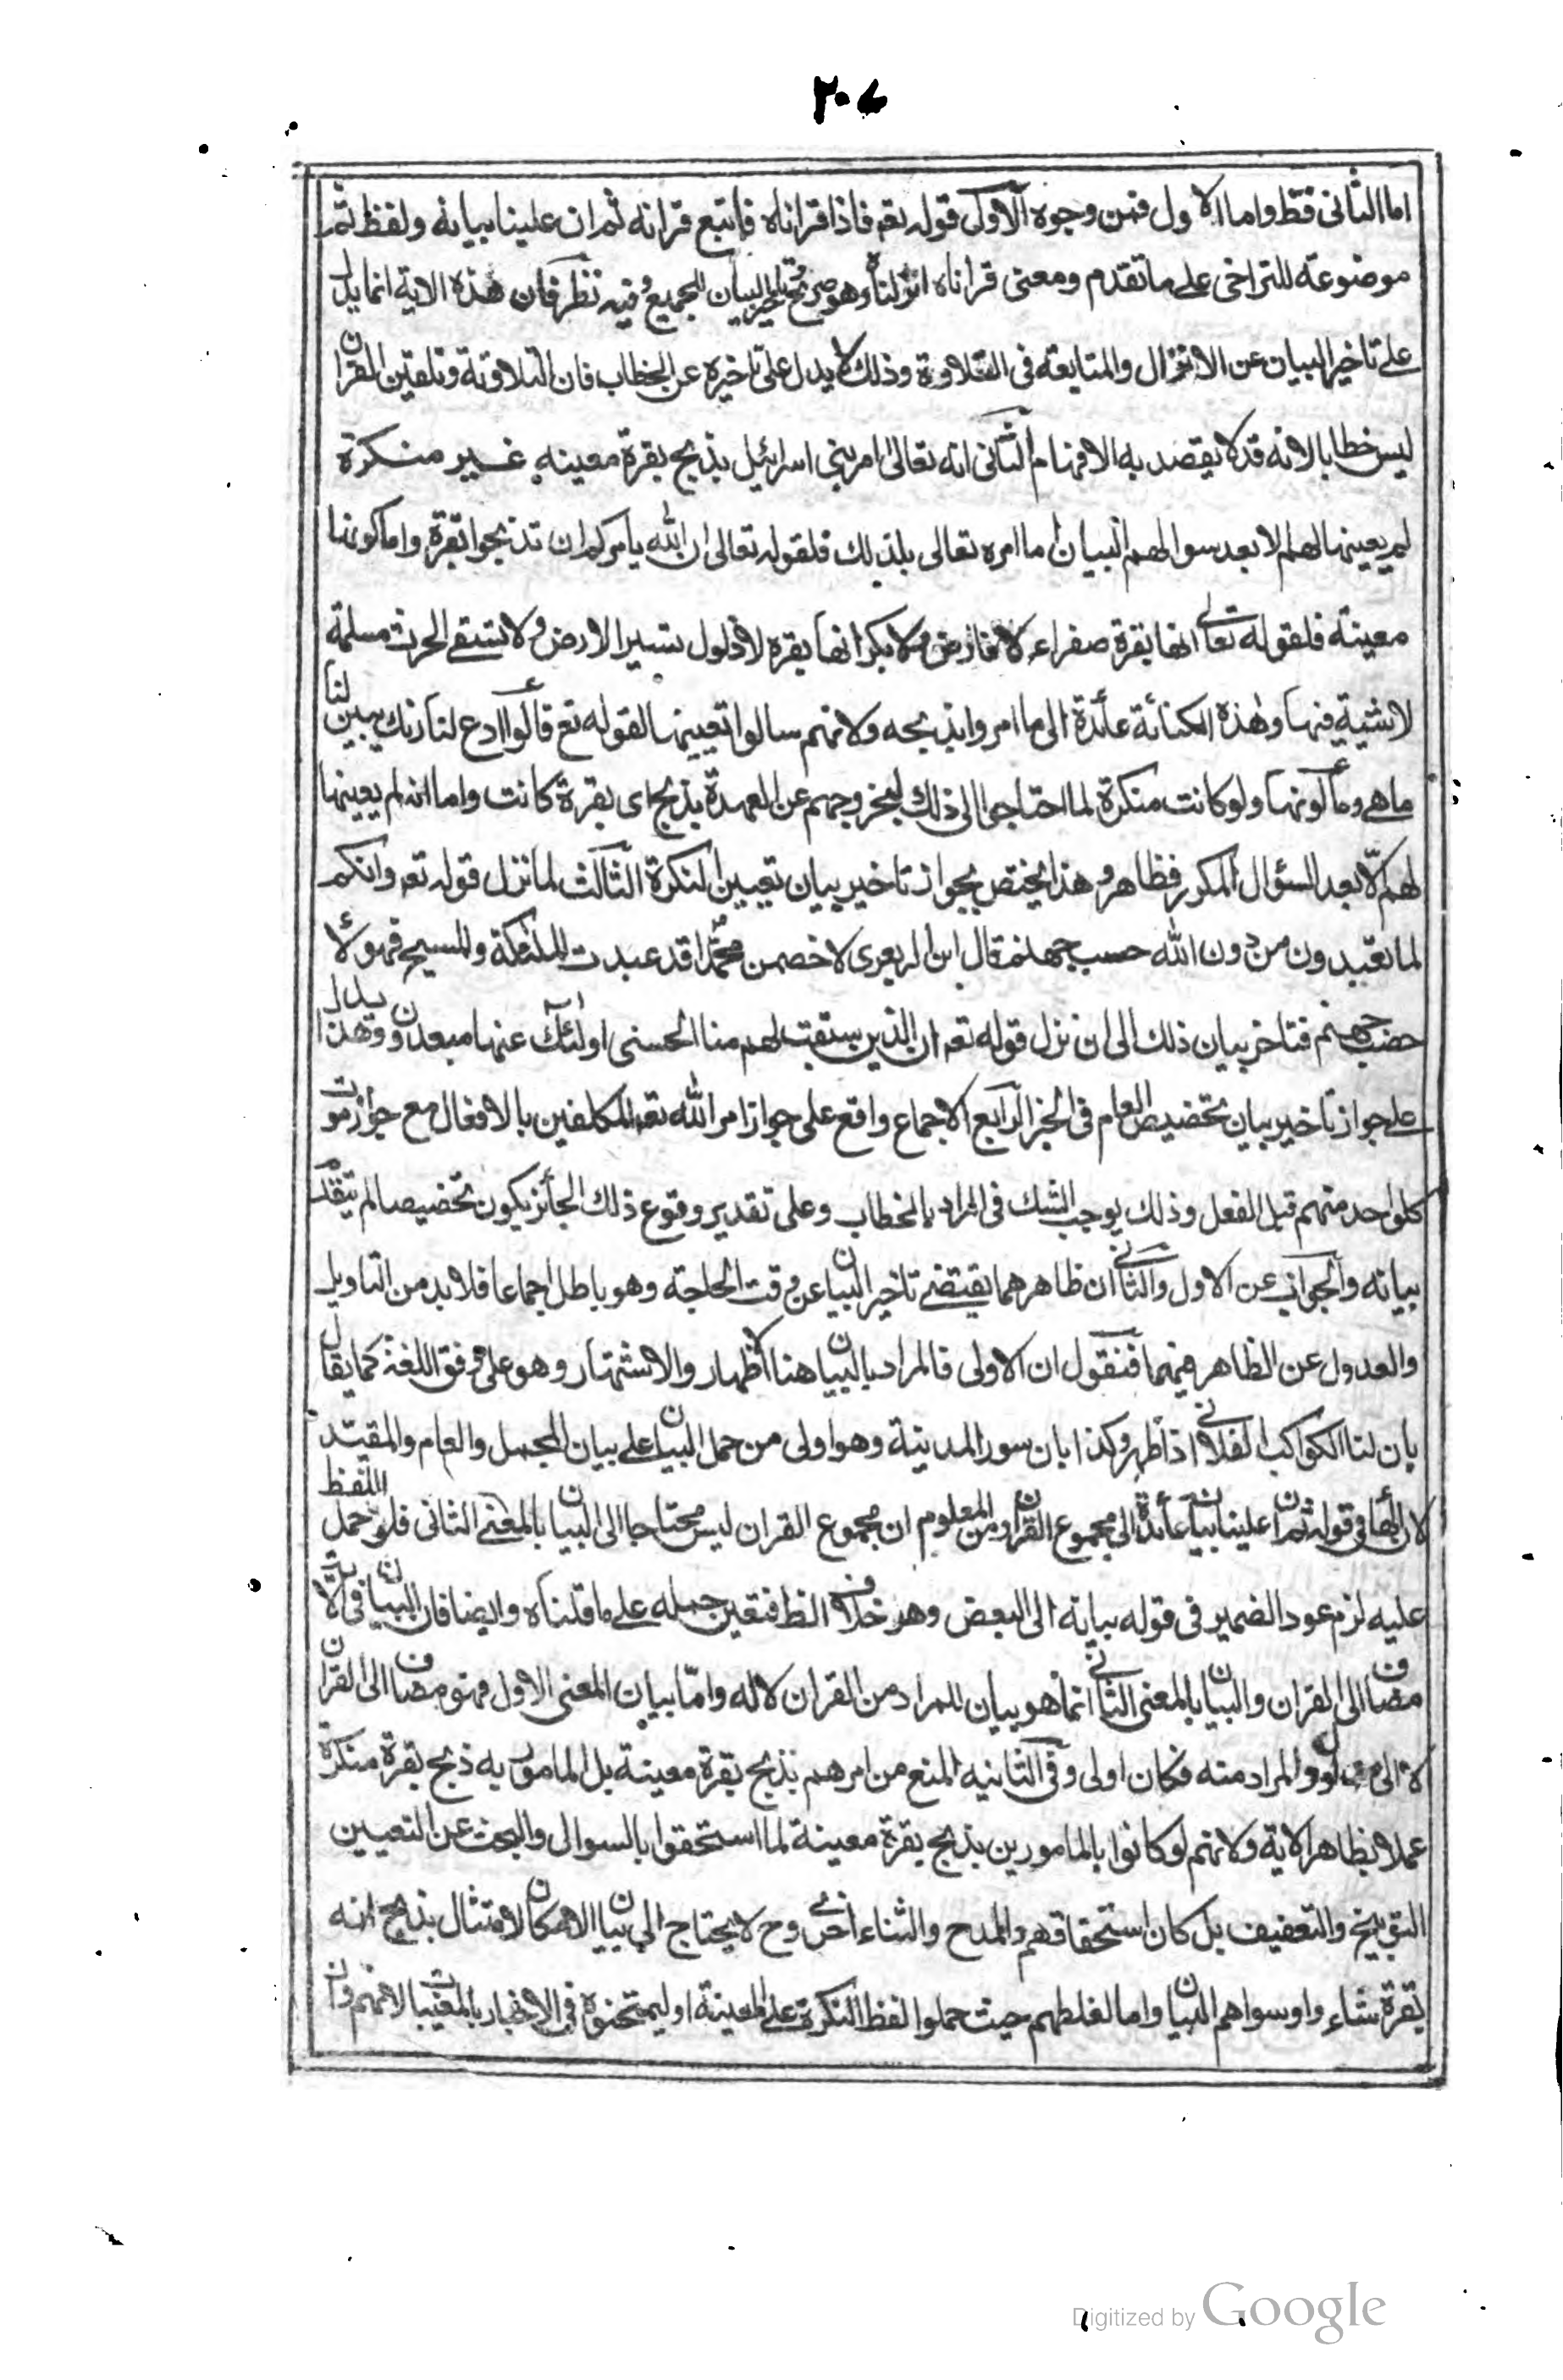 ٢٠٤
اما الثانى فقط واما الاول فمن وجوه الاولى قوله تعه فاذا قراناه فاتبع قرانه ثم ان علينا بيانه ولفظ ثم
موضوعة للتراخى على ما تقدم ومعنى قراناه انزلناه وهو صريح بتاخير البيان للجميع وفيه نظر فان هذه الاية انما يدل
على تاخير البيان عن الانزال والمتابعة فى التلاوة وذلك لا يدل على تاخيره عن الخطاب فان التلاوتة وتلقين القران
ليس خطابا لانه قد لا يقصد به الافهام الثانى انه تعالى امر بنى اسرائيل بذبح بقرة معينه غير منكرة
لم يعينها لهم الا بعد سوالهم البيان اما امره تعالى بذلك فلقوله تعالى ان الله يامركم ان تذبحوا بقرة واما كونها
معينة فلقوله تعالى انها بقرة صفراء لا فارض ولا بكر انها بقره لا ذلول تسير الارض ولا تستقى الحرث مسلمة
لا شية فيها وهذه الكنائة عائدة الى ما امروا بذبحه ولانهم سالوا تعيينها لقوله تع قالوا ادع لنا ربك يبين لنا
ما هى وما لونها ولو كانت منكرة لما احتاجوا الى ذلك لخروجهم عن العهدة بذبح اى بقرة كانت واما انه لم يعينها
لهم الا بعد السؤال المكرر فظاهر وهذا يختص بجواز تاخير بيان تعيين النكرة الثالث لما نزل قوله تعه وانكم
لما تعبدون من دون الله حسب جهنم قال ابن الزبعرى لاخصمن محمدا قد عبدت الملئكة والمسيح فهولاء
حضب جهنم فتاخر بيان ذلك الى ان نزل قوله تعه ان الذين سبقت لهم منا الحسنى اولئك عنها مبعدون وهذا يدل
على جواز تاخير بيان تخصيص العام فى الخبر الرابع الاجماع واقع على جواز امر الله تعه المكلفين بالافعال مع جواز موت
كل واحد منهم قبل الفعل وذلك يوجب الشك فى المراد بالخطاب وعلى تقدير وقوع ذلك الجائز يكون تخصيصا لم يتقدم
بيانه والجواب عن الاول والثانى ان ظاهرهما يقتضى تاخير البيان عن وقت الحاجة وهو باطل اجماعا فلا بد من التاويل
والعدول عن الظاهر فيهما فنقول ان الاولى فالمراد بالبيان هنا الاظهار والاشتهار وهو على وفق اللغة كما يقال
بان لنا الكواكب الفلانى اذا ظهر وكذا بان سور المدينة وهو اولى من حمل البيان على بيان المجمل والعام والمقيد
لان الها فى قوله ثم ان علينا بيانه عائدة الى مجموع القران ومن المعلوم ان مجموع القران ليس محتاجا الى البيان بالمعنى الثانى فلو حمل اللفظ
عليه لزم عود الضمير فى قوله بيانه الى البعض وهو خلاف الظ فتعين حمله على ما قلناه وايضا فان البيان فى الاية
مضاف الى القران والبيان بالمعنى الثانى انما هو بيان للمراد من القران لا له واما بيان المعنى الاول فهو مضاف الى القران
لا الى مدلوله المراد منه فكان اولى وفى الثانيه المنع من امرهم بذبح بقرة معينة بل المامور به ذبح بقرة منكرة
عملا بظاهر الاية ولانهم لو كانوا بالمامورين بذبح بقرة معينة لما استحقوا بالسوال والبحث عن التعيين
التوبيخ والتعفيف بل كان استحقاقهم والمدح والثناء احرى وح لا يحتاج الى بيان لامكان الامتثال بذبح اية
بقرة شاء واو سوالهم البيان واما لغلطهم حيث حملوا لفظ النكرة على المعينة او ليمتحنوه فى الاخبار بالمغيبات لانهم وان
Digitized by Google